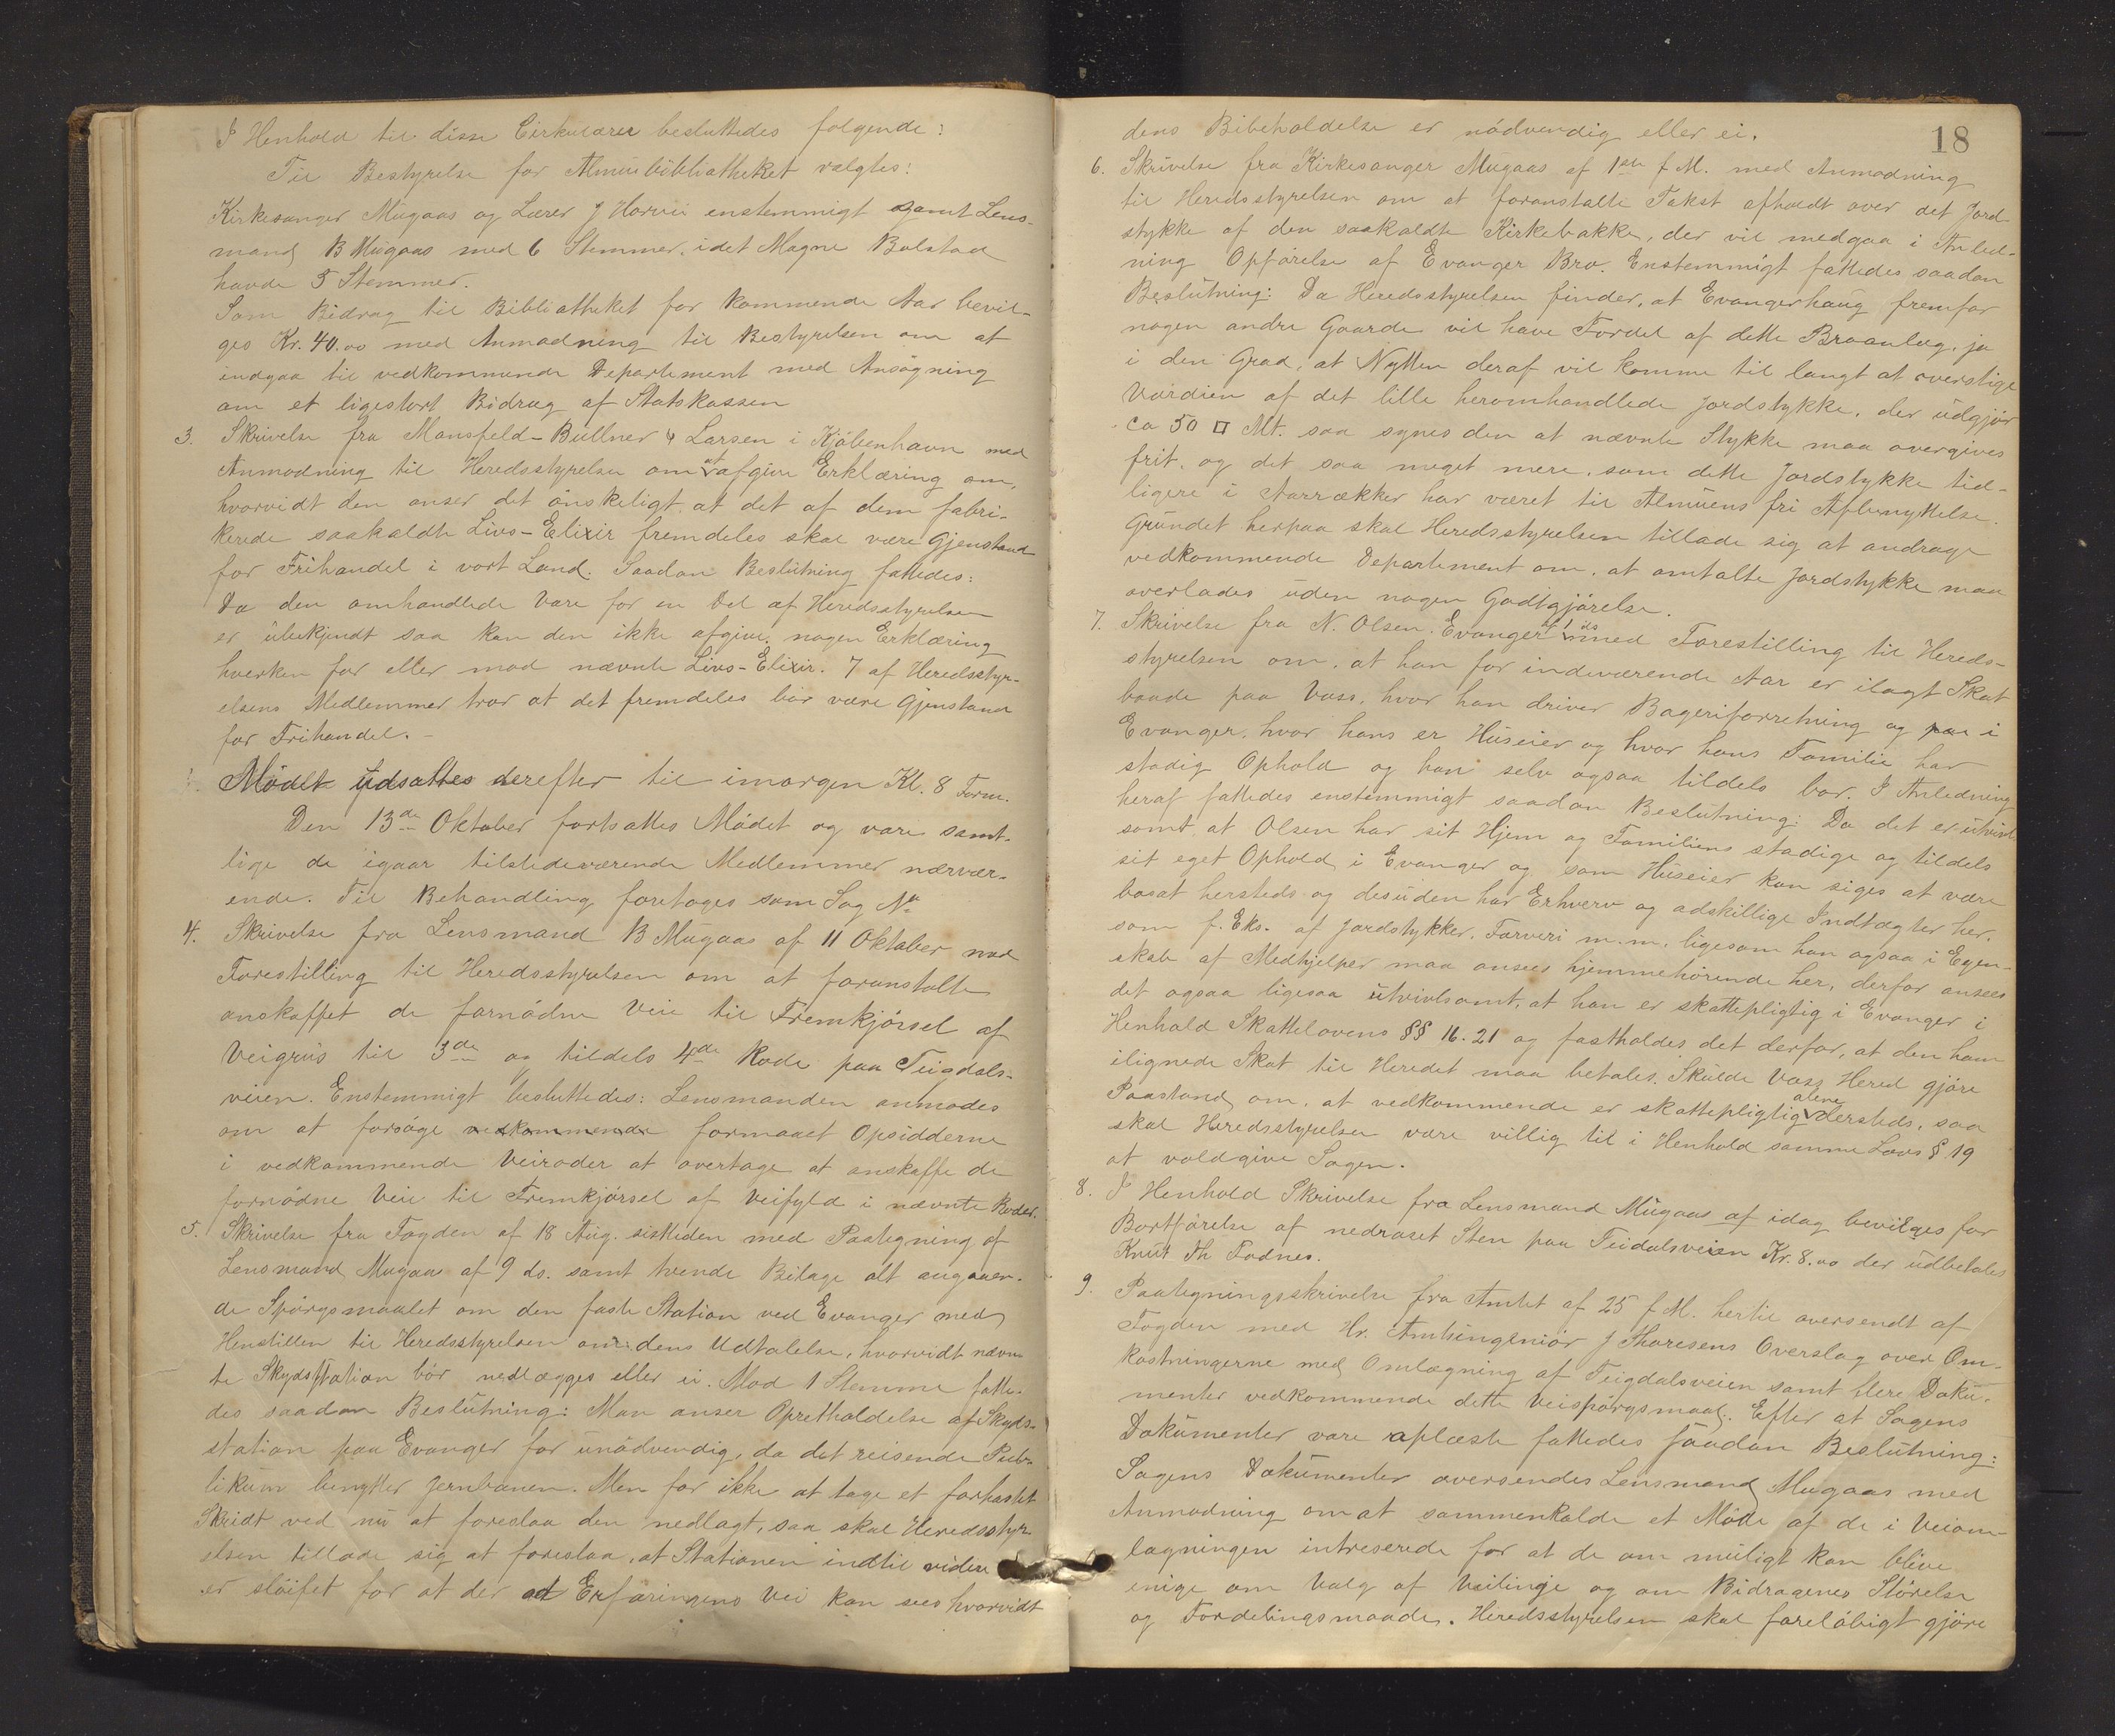 I Henhold til disse Cirkulærer besluttedes følgende:
Til Bestyrelse for Almuebibliotheket valgtes:
Kirkesanger Mugaas og Lærer J Horvei enstemmigt samt Lens-
mand B Mugaas med 6 Stemmer, idet Magne Bolstad
havde 5 Stemmer.
Som Bidrag til Bibliotheket for kommende Aar bevil-
ges Kr. 40.00 med Anmodning til Bestyrelsen om at
indgaa til vedkommende Departement med Ansøgning
om et ligestort Bidrag af Statskassen
3. Skrivelse fra Mansfeld-Büllner & Larsen i Kjøbenhavn med
Anmodning til Heredsstyrelsen om at afgive Erklæring om,
hvorvidt den anser det ønskeligt at det af dem fabri-
kerede saakaldte Livs-Elixir fremdeles skal være Gjenstand
for Frihandel i vort Land. Saadan Beslutning fattedes:
Da den omhandlede Vare for en Del af Heredsstyrelsen
er ubekjendt saa kan den ikke afgive nogen Erklæring
hverken for eller mod nævnte Livs-Elixir. 7 af Heredsstyr-
elsens Medlemmer tror at det fremdeles bør være Gjenstand
for Frihandel.-
Mødet udsattes derefter til imorgen Kl. 8 Form.
Den 13de Oktober fortsattes Mødet og vare samt-
lige de igaar tilstedeværende Medlemmer nærvær-
ende. Til Behandling foretoges som Sag No
4. Skrivelse fra Lensmand B Mugaas af 11 Oktober med
Forestilling til Heredsstyrelsen om at foranstalte
anskaffet de fornødne Veie til Fremkjørsel af
Veigrus til 3de og tildels 4de Rode paa Teigdals-
veien. Enstemmigt besluttedes: Lensmanden anmodes
om at forsøge vedkommende formaaet Opsidderne
i vedkommende Veiroder at overtage at anskaffe de
fornødne Veie til Fremkjørsel af Veifyld i nævnte Roder.
5. Skrivelse fra Fogden af 18 Aug. sidstleden med Paategning af
Lensmand Mugaas af 9 ds. samt tvende Bilage alt angaaen-
de Spørgsmaalet om den faste Station ved Evanger med
Henstillen til Heredsstyrelsen om dens Udtalelse, hvorvidt nævn
te Skydsstation bør nedlægges eller ei. Mod 1 Stemme fatte-
des saadan Beslutning: Man anser Opretholdelse af Skyds-
station paa Evanger for unødvendig, da det reisende Pub-
likum benytter Jernbanen. Men for ikke at tage et forhastet
Skridt ved nu at foreslaa den nedlagt, saa skal Heredsstyr
elsen tillade sig at foreslaa, at Stationen indtil videre
er sløifet for at der ad Erfaringens Vei kan sees hvorvidt
18
dens Bibeholdelse er nødvendig eller ei.
6. Skrivelse fra Kirkesanger Mugaas af 1ste f M. med Anmodning
til Heredsstyrelsen om at foranstalte Takst afholdt over det Jord-
stykke af den saakaldte Kirkebakke, der vil medgaa i Anled-
ning Opførelse af Evanger Bro. Enstemmigt fattedes saadan
Beslutning: Da Heredsstyrelsen finder, at Evangerhaug fremfor
nogen andre Gaarde vil have Fordel af dette Broanlæg, ja
i den Grad, at Nytten deraf vil komme til langt at overstige
Værdien af det lille heromhandlede Jordstykke, der udgjør
ca 50 □ Mt. saa synes den at nævnte Stykke maa overgives
frit, og det saa meget mere, som dette Jordstykke tid-
ligere i Aarrækker har været til Almuens fri Afbenyttelse.
Grundet herpaa skal Heredsstyrelsen tillade sig at andrage
vedkommende Departement om, at omtalte Jordstykke maa
overlades uden nogen Godtgjørelse.
7. Skrivelse fra N. Olsen Evanger af 1 ds med Forestilling til Hereds-
styrelsen om, at han for indeværende Aar er ilagt Skat
baade paa Voss, hvor han driver Bageriforretning og paa i
Evanger, hvor hans er Huseier og hvor hans Familie har
stadig Ophold og han selv ogsaa tildels bor. I Anledning
heraf fattedes enstemmigt saadan Beslutning: Da det er utvivl
somt, at Olsen har sit Hjem og Familiens stadige og tildels
sit eget Ophold i Evanger og som Huseier kan siges at være
bosat hersteds og desuden har Erhverv og adskillige Indtægter her,
som f. Eks. af Jordstykker, Farveri m.m. ligesom han ogsaa i Egen-
skab af Medhjelper maa ansees hjemmehørende her, derfor ansees
det ogsaa ligesaa utvivlsomt, at han er skattepligtig i Evanger i
Henhold Skattelovens §§ 16. 21 og fastholdes det derfor, at den ham
ilignede Skat til Heredet maa betales. Skulde Voss Hered gjøre
Paastand om, at vedkommende er skattepligtig alene dersteds, saa
skal Heredsstyrelsen være villig til i Henhold samme Lovs § 19
at voldgive Sagen.
8. I Henhold Skrivelse fra Lensmand Mugaas af idag bevilges for
Bortførelse af nedraset Sten paa Teidalsveien Kr. 8.00 der udbetales
Knut Th Fadnes.
9. Paategningsskrivelse fra Amtet af 25 f M. hertil oversendt af
Fogden med Hr. Amtsingeniør J Thoresens Overslag over Om-
kostningerne med Omlægning af Teigdalsveien samt flere Doku-
menter vedkommende dette Veispørgsmaal. Efter at Sagens
Dokumenter vare oplæste fattedes saadan Beslutning:
Sagens Dokumenter oversendes Lensmand Mugaas med
Anmodning om at sammenkalde et Møde af de i Veiom-
lægningen intreserede for at de om muligt kan blive
enige om Valg af Veilinje og om Bidragenes Størelse
og Fordelingsmaade. Heredsstyrelsen skal foreløbigt gjøre